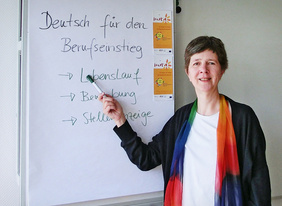 Deutsch für den
Berufseinstieg
→ Lebenslauf
→ Bewerbung
→ Stellenanzeige